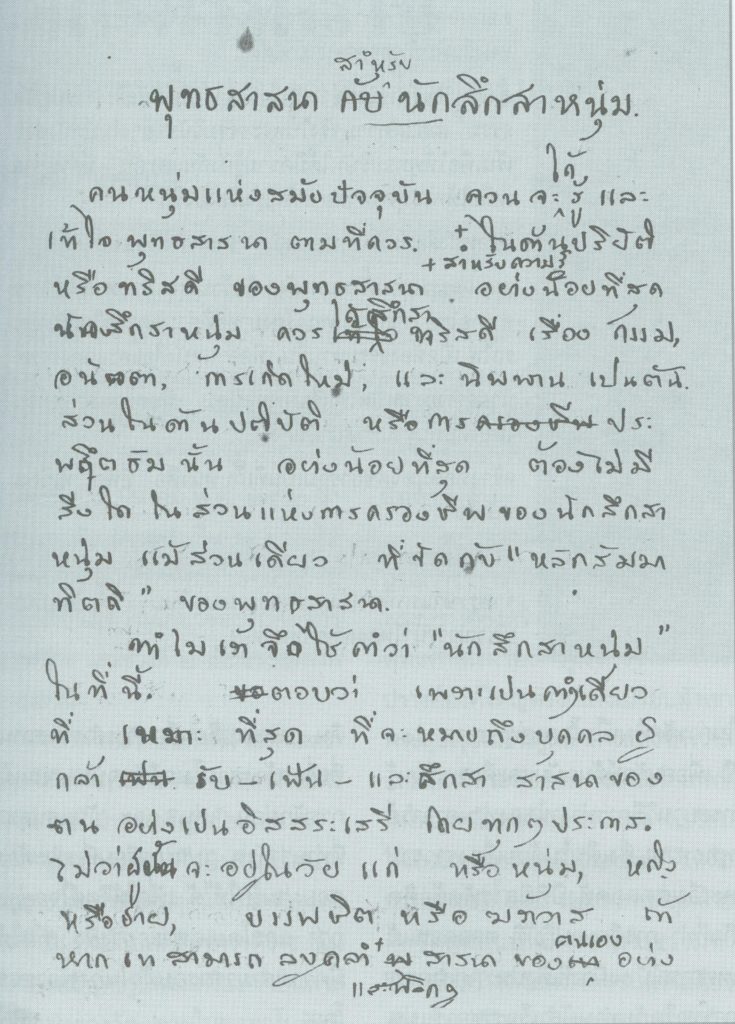 สำหรับ
พุทธสาสนา กับ นักสึกสาหนุ่ม.
ได้
คนหนุ่มแห่งสมัยปัจจุบัน ควนจะรู้ และ
เข้าใจ พุทธสาสนา ตามที่ควร. ในด้านปริยัติ
+ สำหรับความรู้
หรือ ทริสดี ของพุทธสาสนา อย่างน้อยที่สุด
ได้สึกสา
นักสึกสาหนุ่ม ควร ทริสดี เรื่อง กัมม,
อนัตตา, การเกิดใหม่, และ นิพพาน เป็นต้น.
ส่วนในด้านปติบัติ หรือการครองชีพ ประ
พรึตธัม นั้น อย่างน้อยที่สุด ต้องไม่มี
สิ่งใด ในส่วนแห่งการครองชีพของนักสึกสา
หนุ่ม แม้ส่วนเดียว ที่ขัดกับ "หลักสัมมา
ทิตถิ" ของพุทธสาสนา.
ทำไมเข้าจึงใช้คำว่า "นักสึกสาหนุ่ม"
ในที่นี้. ตอบว่า เพราะเป็นคำเดียว
ที่ เหมาะ ที่สุด ที่จะหมายถึงบุคคล ผู้
กล้า รับ - ฟัน - และสึกสา สาสนาของ
ตน อย่างเป็นอิสสระเสรี โดยทุกๆประการ.
ไม่ว่าผู้นั้นจะอยู่ในวัย แก่ หรือหนุ่ม, หญิง
หรือชาย, บรรพชิต หรือ ฆราวาส
ตนเอง
หาก เขาสามารถ ลงคลำ สาสนา ของ อย่าง
และพลิกๆ